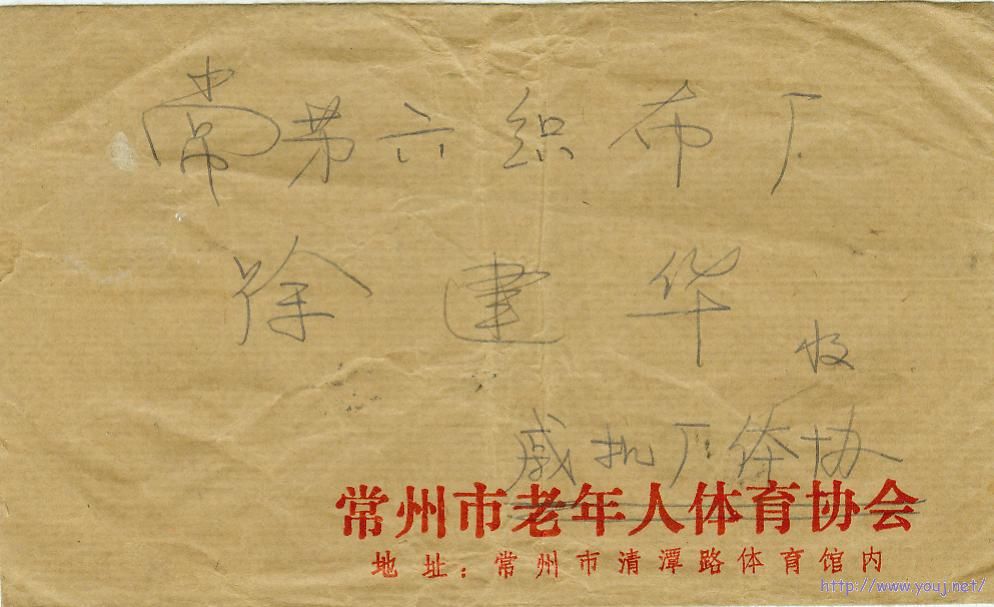 常第六织布厂
徐建华
收
戚机厂体协
常州市老年人体育协会
地址：常州市清潭路体育馆内
http://www.youj.net/